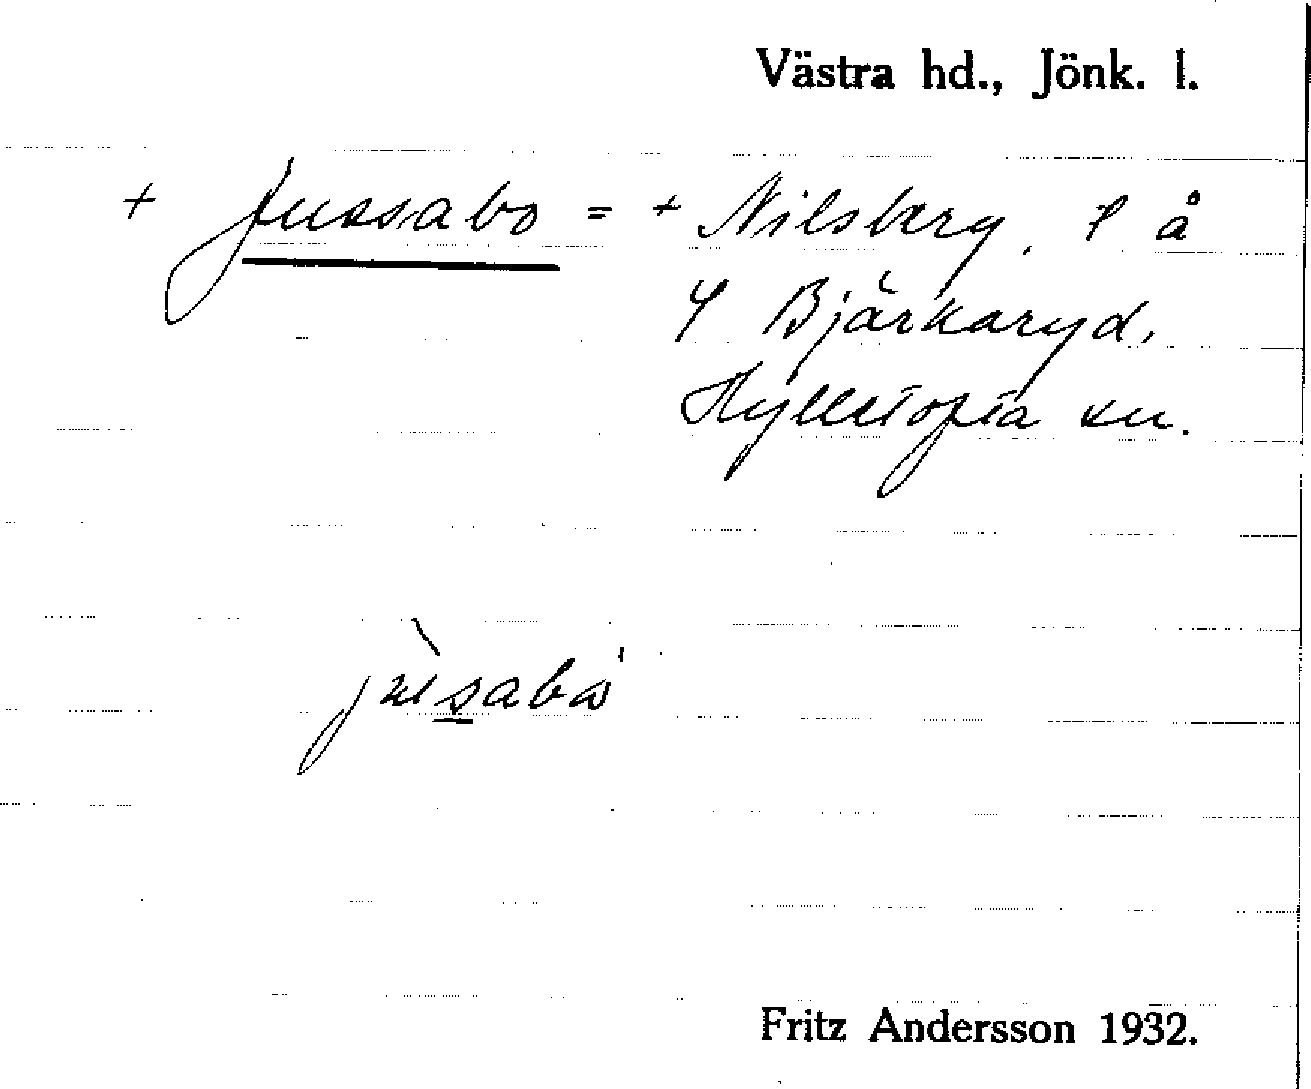 Västra hd., Jönk. l.
+ Jussabo = + Nilsberg. l å
4 Bjärkaryd,
Hylletofta sn.
jusabo
Fritz Andersson 1932.